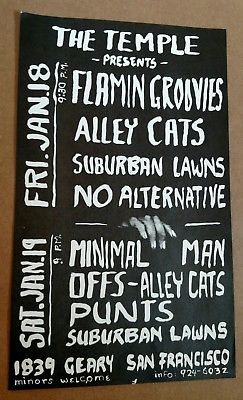 THE TEMPLE
- PRESENTS -
FRI. JAN. 18
9:30 P.M.
FLAMIN GROOVIES
ALLEY CATS
SUBURBAN LAWNS
NO ALTERNATIVE
SAT. JAN. 19
9 P.M.
MINIMAL MAN
OFFS - ALLEY CATS
PUNTS
SUBURBAN LAWNS
1839 GEARY SAN FRANCISCO
minors welcome info: 924-6032